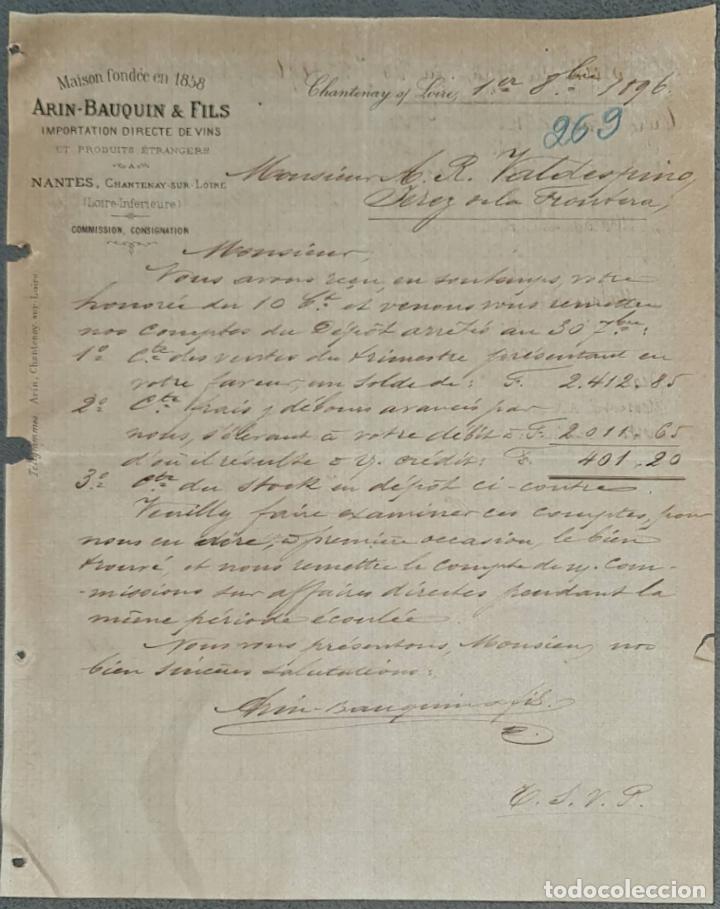 Maison fondée en 1858
ARIN-BAUQUIN & FILS
IMPORTATION DIRECTE DE VINS
ET PRODUITS ÉTRANGERS
A
NANTES, CHANTENAY-SUR-LOIRE
(Loire-Inférieure)
COMMISSION, CONSIGNATION
Télégrammes: Arin, Chantenay-sur-Loire
Chantenay s/ Loire, 1er 8bre 1896
269
Monsieur A. R. Valdespino,
Jerez de la Frontera,
Monsieur,
Vous avons reçu, en son temps, votre
honorée du 10 Ct. et venons vous remettre
nos comptes du Dépôt arrêtés au 30 7bre:
1º Cte des ventes du trimestre présentant en
votre faveur, un solde de: F. 2.412.85
2º Cte frais & débours avancés par
nous, s'élevant à votre débit à F. 2.011.65
d'où il résulte à V. crédit: F. 401.20
3º Cte du stock en dépôt ci-contre
Veuillez faire examiner ces comptes, pour
nous en dire, à première occasion, le bien
trouvé, et nous remettre le compte de n/. com-
-missions sur affaires directes pendant la
même période écoulée.
Nous vous présentons, Monsieur, nos
bien sincères salutations:
Arin-Bauquin & fils.
T. S. V. P.
todocoleccion